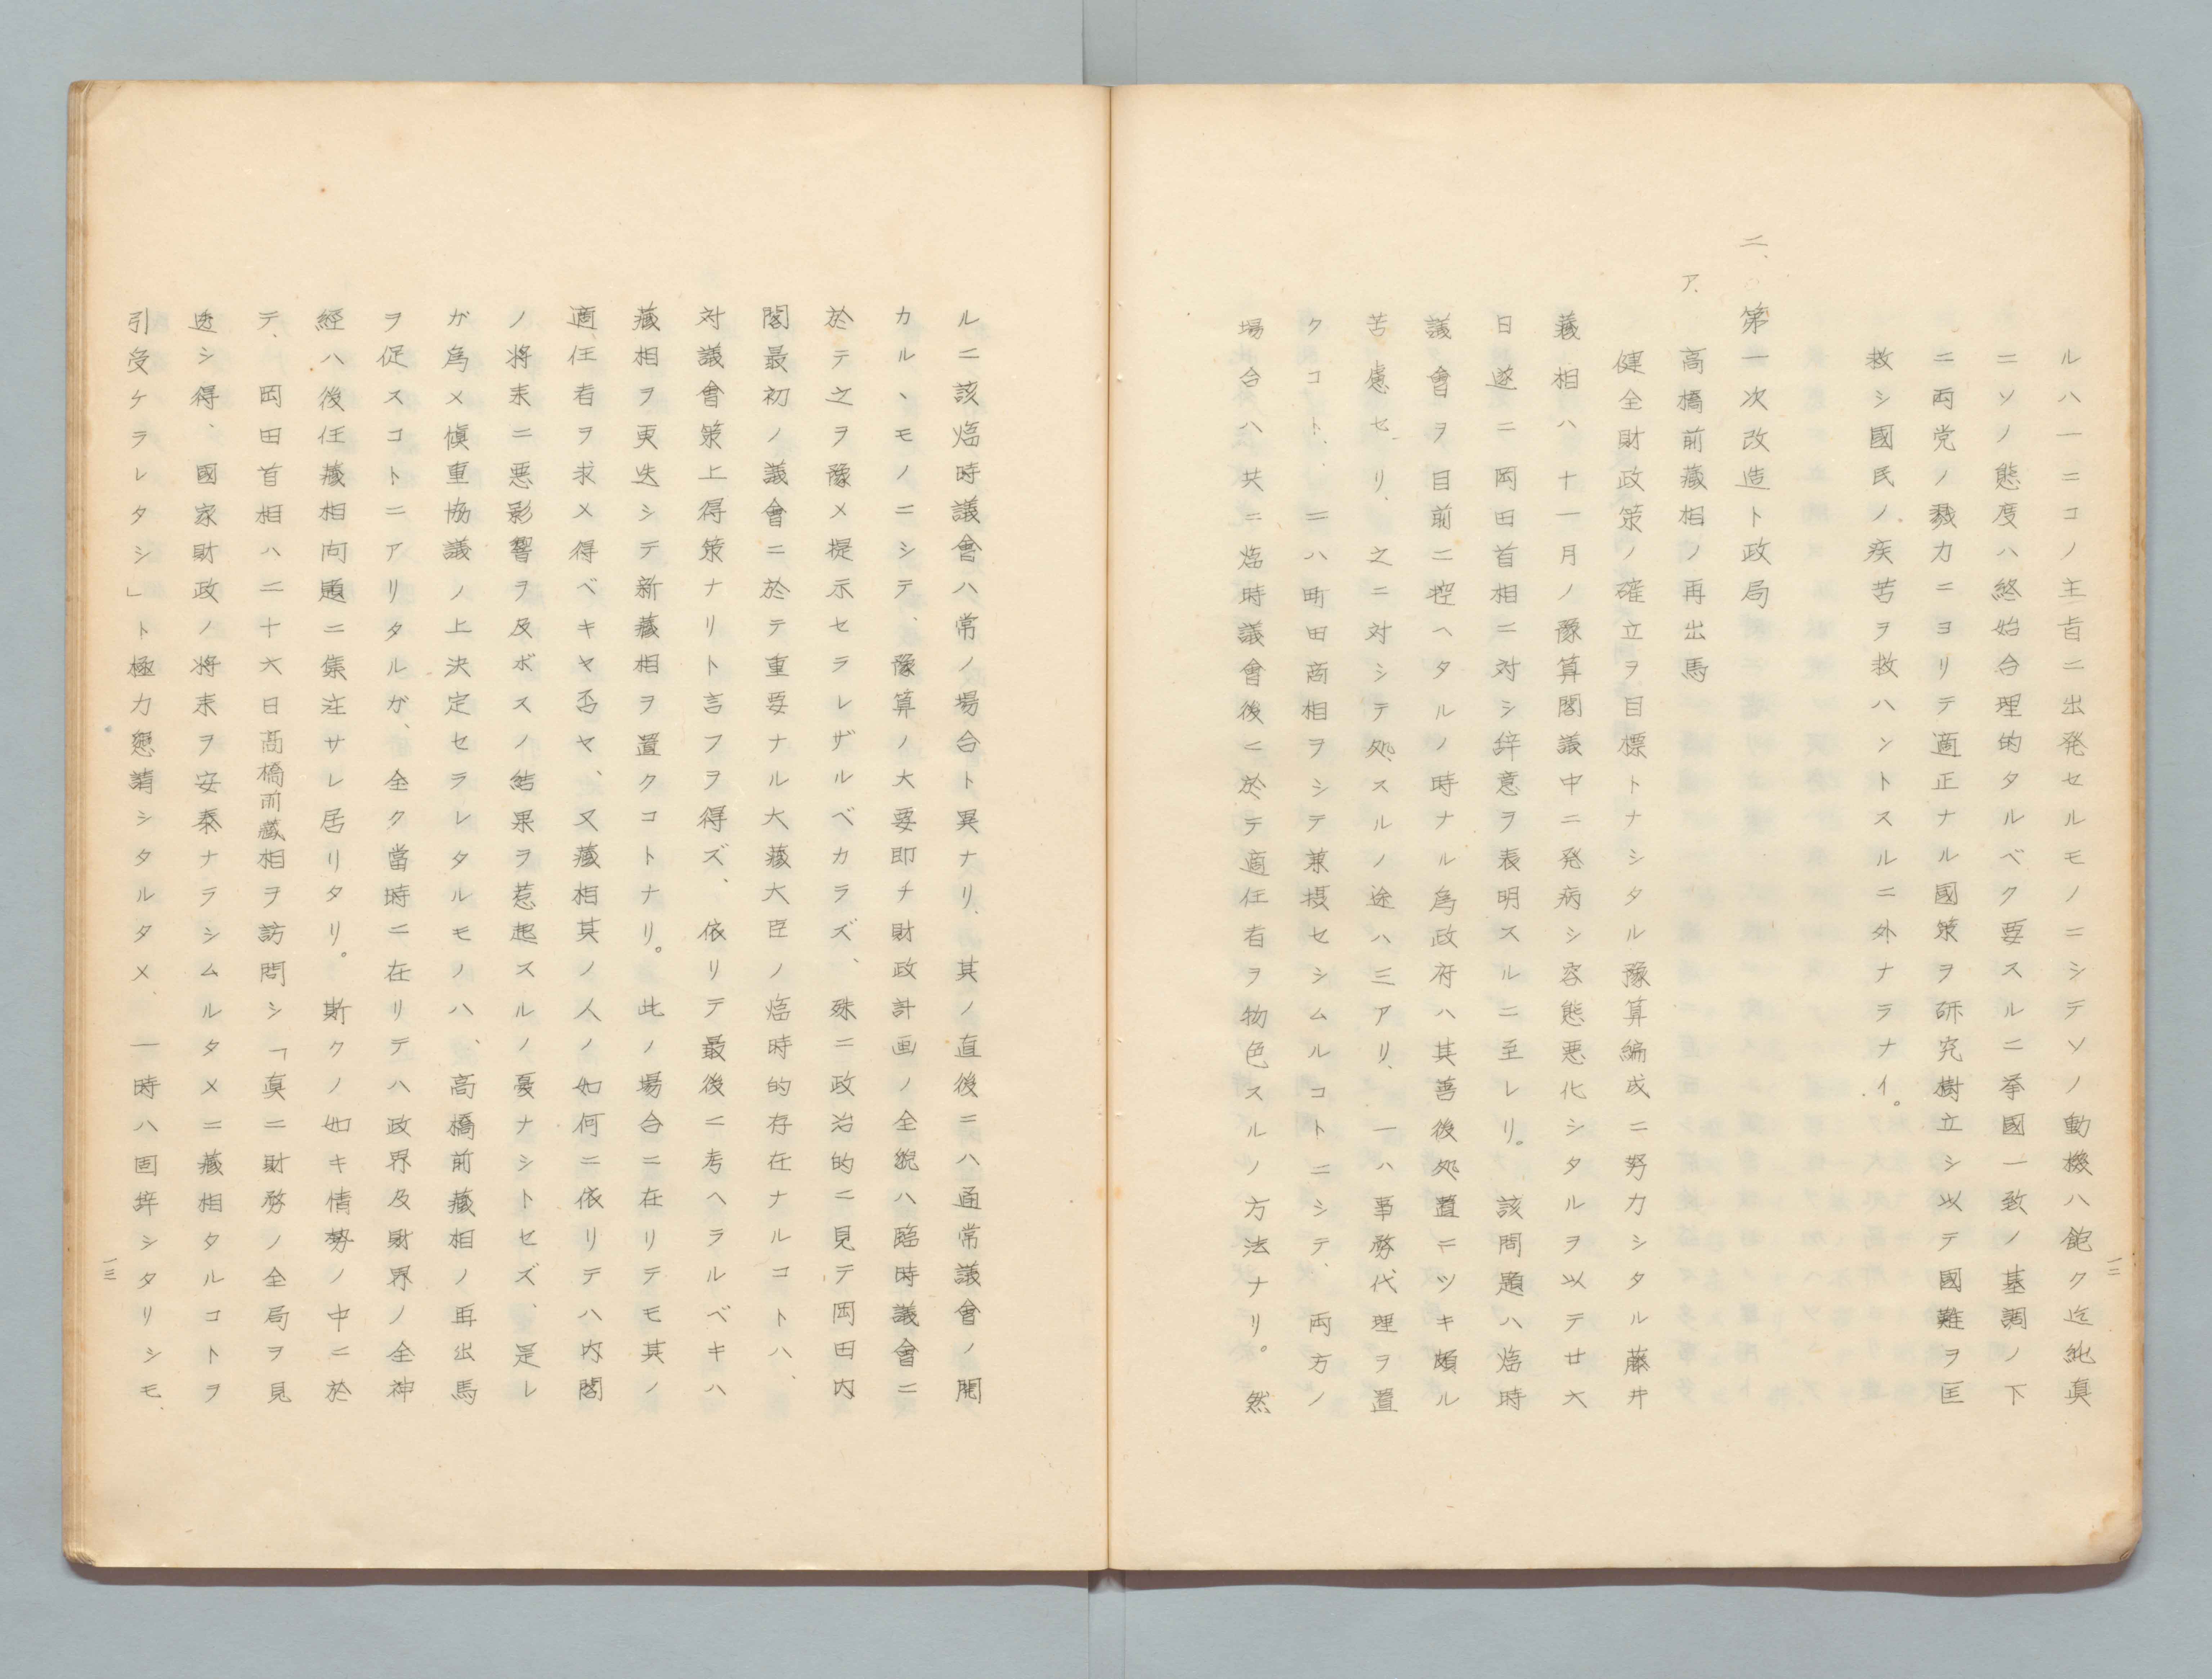 ルハ一ニコノ主旨ニ出発セルモノニシテソノ動機ハ飽ク迄純眞
ニソノ態度ハ終始合理的タルベク要スルニ挙國一致ノ基調ノ下
ニ両党ノ戮力ニヨリテ適正ナル國策ヲ研究樹立シ以テ國難ヲ匡
救シ國民ノ疾苦ヲ救ハントスルニ外ナラナイ。
二、第一次改造ト政局
ア、高橋前藏相ノ再出馬
健全財政策ノ確立ヲ目標トナシタル豫算編成ニ努力シタル藤井
藏相ハ十一月ノ豫算閣議中ニ発病シ容態悪化シタルヲ以テ廿六
日遂ニ岡田首相ニ対シ辞意ヲ表明スルニ至レリ。該問題ハ臨時
議會ヲ目前ニ控ヘタルノ時ナル爲政府ハ其善後処置ニツキ頗ル
苦慮セリ、之ニ対シテ処スルノ途ハ三アリ、一ハ事務代理ヲ置
クコト、二ハ町田商相ヲシテ兼摂セシムルコトニシテ、両方ノ
場合ハ共ニ臨時議會後ニ於テ適任者ヲ物色スルノ方法ナリ。然
一二
ルニ該臨時議會ハ常ノ場合ト異ナリ、其ノ直後ニハ通常議會ノ開
カルヽモノニシテ、豫算ノ大要即チ財政計画ノ全貌ハ臨時議會ニ
於テ之ヲ豫メ提示セラレザルベカラズ、殊ニ政治的ニ見テ岡田内
閣最初ノ議會ニ於テ重要ナル大藏大臣ノ臨時的存在ナルコトハ、
対議會策上得策ナリト言フヲ得ズ、依リテ最後ニ考ヘラルベキハ
藏相ヲ更迭シテ新藏相ヲ置クコトナリ。此ノ場合ニ在リテモ其ノ
適任者ヲ求メ得ベキヤ否ヤ、又藏相其ノ人ノ如何ニ依リテハ内閣
ノ将来ニ悪影響ヲ及ボスノ結果ヲ惹起スルノ憂ナシトセズ、是レ
ガ爲メ愼重協議ノ上決定セラレタルモノハ、高橋前藏相ノ再出馬
ヲ促スコトニアリタルガ、全ク當時ニ在リテハ政界及財界ノ全神
經ハ後任藏相向題ニ集注サレ居リタリ。斯クノ如キ情勢ノ中ニ於
テ、岡田首相ハ二十六日高橋前藏相ヲ訪問シ「眞ニ財務ノ全局ヲ見
透シ得、國家財政ノ将来ヲ安泰ナラシムルタメニ藏相タルコトヲ
引受ケラレタシ」ト極力懇請シタルタメ、一時ハ固辞シタリシモ、
一三